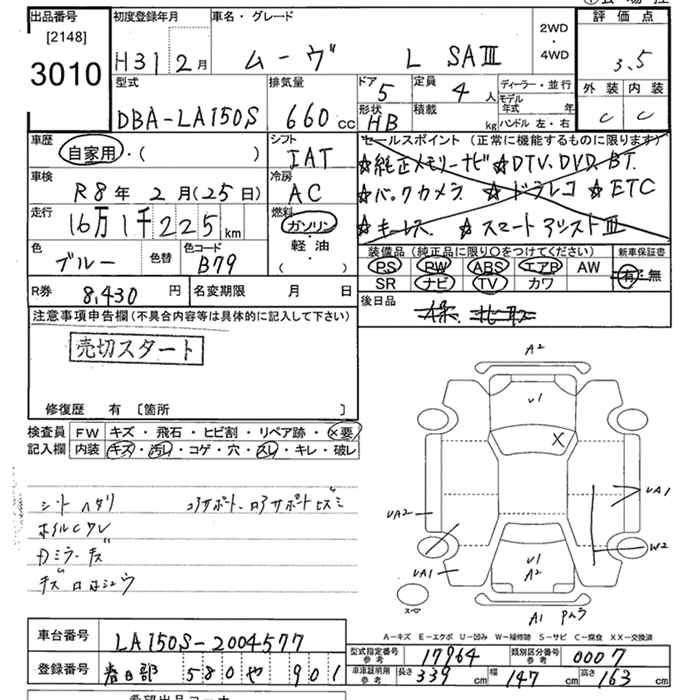 出品番号
[2148]
3010
初度登録年月
H31 2月
車名・グレード
ムーヴ L SAⅢ
2WD
・
4WD
評価点
3.5
外装 内装
C C
型式
DBA-LA150S
排気量
660cc
ドア
5
定員
4人
ディーラー・並行
モデル年式 年
形状
HB
積載
kg
ハンドル 左・右
車歴
自家用・( )
シフト
IAT
セールスポイント (正常に機能するものに限ります)
☆純正メモリーナビ ☆DTV.DVD.BT
☆バックカメラ ☆ドラレコ ☆ETC
☆キーレス ☆スマートアシストⅢ
車検
R8年 2月(25日)
冷房
AC
走行
16万1千225km
燃料
ガソリン
・
軽・油
( )
色
ブルー
色替
色コード
B79
装備品 (純正品に限り○をつけてください)
PS PW ABS エアB AW
SR ナビ TV カワ
新車保証書
有・無
R券 8,430円
名変期限 月 日
後日品
注意事項申告欄(不具合内容等は具体的に記入して下さい)
売切スタート
修復歴 有 [箇所 ]
検査員記入欄
FW キズ・飛石・ヒビ割・リペア跡・×要
内装 キズ・汚レ・コゲ・穴・スレ・キレ・破レ
シートヘタリ コアサポート.ロアサポートヒズミ
ホイルCワレ
Fミラーキズ
A2
U1
X
UA2
UA1
W2
UA1
U1
A2
A1
スペア
A-キズ E-エクボ U-凹み W-補修跡 S-サビ C-腐食 XX-交換済
車台番号 LA150S-2004577
型式指定番号 参考 17964
類別区分番号 参考 0007
登録番号 春日部 580 や 901
車庫証明用 参考 長さ 339cm 幅 147cm 高さ 163cm